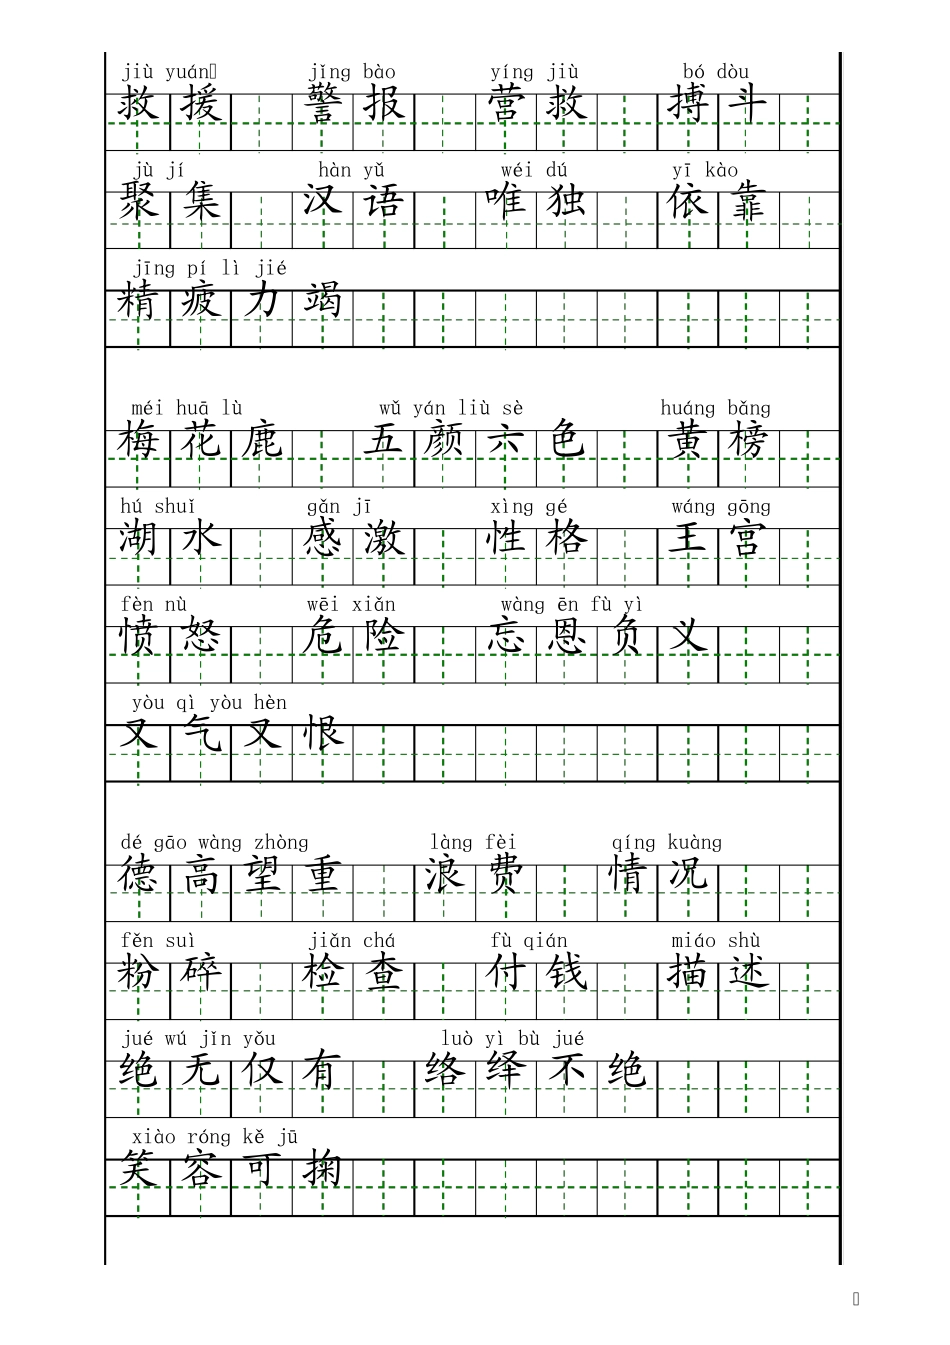 jiù yuán jǐng bào yíng jiù bó dòu
救援 警报 营救 搏斗
jù jí hàn yǔ wéi dú yī kào
聚集 汉语 唯独 依靠
jīng pí lì jié
精疲力竭
méi huā lù wǔ yán liù sè huáng bǎng
梅花鹿 五颜六色 黄榜
hú shuǐ gǎn jī xìng gé wáng gōng
湖水 感激 性格 王宫
fèn nù wēi xiǎn wàng ēn fù yì
愤怒 危险 忘恩负义
yòu qì yòu hèn
又气又恨
dé gāo wàng zhòng làng fèi qíng kuàng
德高望重 浪费 情况
fěn suì jiǎn chá fù qián miáo shù
粉碎 检查 付钱 描述
jué wú jǐn yǒu luò yì bù jué
绝无仅有 络绎不绝
xiào róng kě jū
笑容可掬